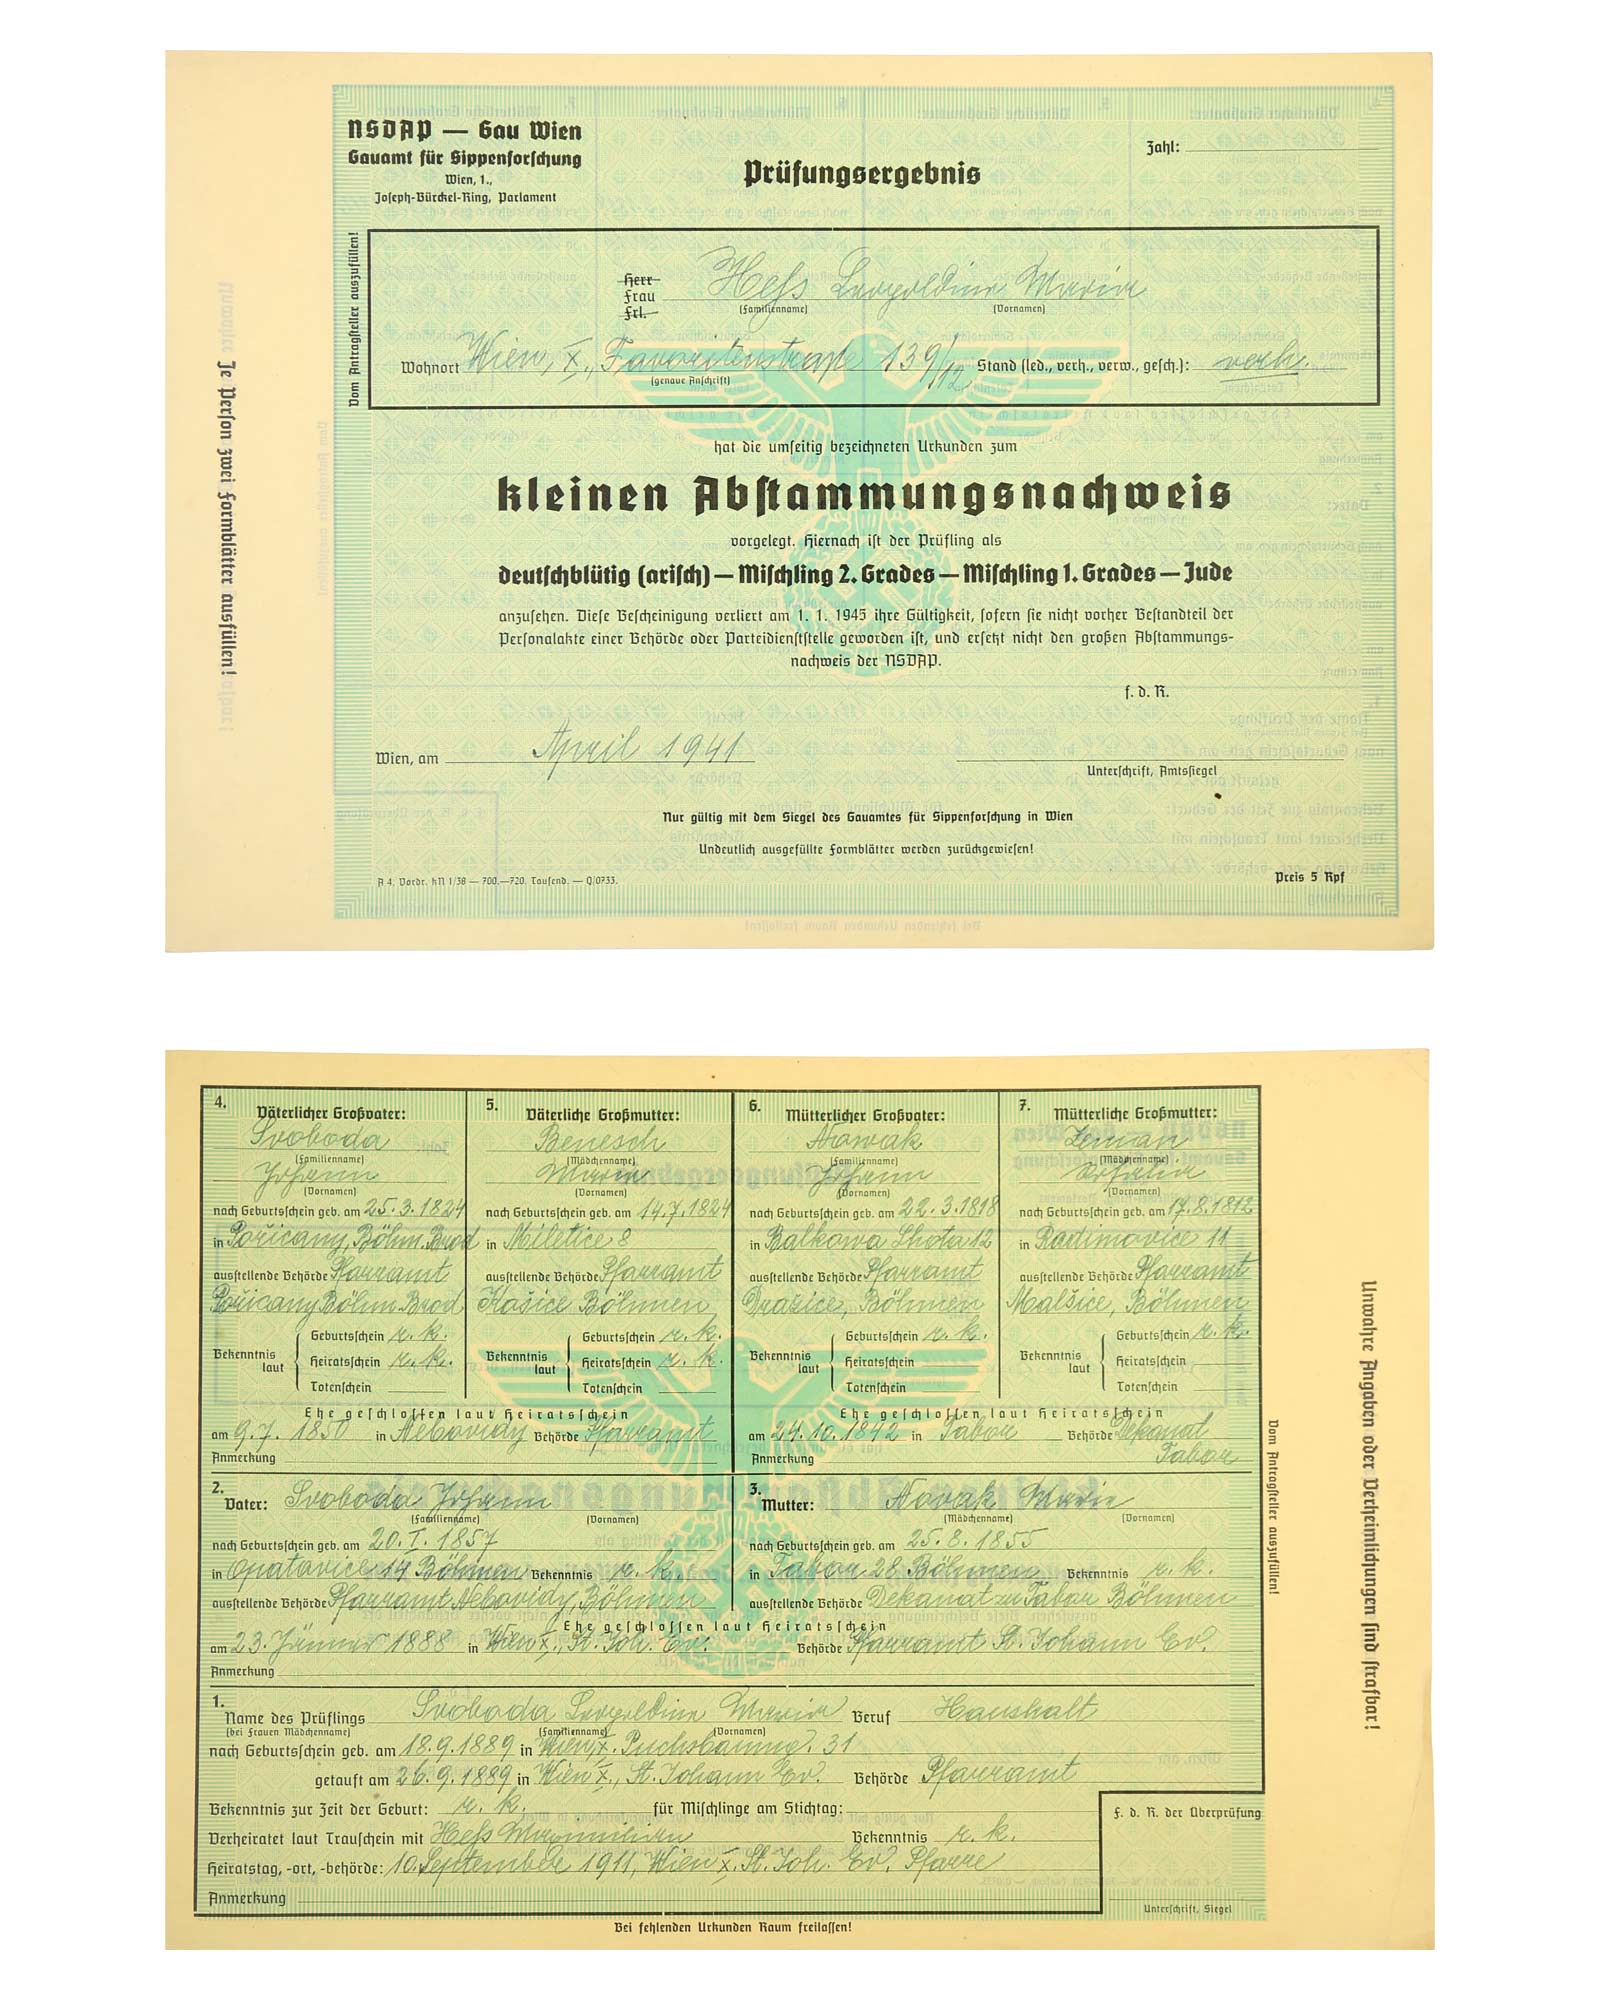 NSDAP — Gau Wien
Gauamt für Sippenforschung
Wien, 1.,
Joseph-Bürckel-Ring, Parlament
Prüfungsergebnis
Zahl:
Je Person zwei Formblätter ausfüllen!
Vom Antragsteller auszufüllen!
Herr
Frau
Frl.
Heß Leopoldine Maria
(Familienname) (Vornamen)
Wohnort Wien, X., Favoritenstraße 139/12 Stand (led., verh., verw., gesch.): verh.
(genaue Anschrift)
hat die umseitig bezeichneten Urkunden zum
kleinen Abstammungsnachweis
vorgelegt. Hiernach ist der Prüfling als
deutschblütig (arisch) — Mischling 2. Grades — Mischling 1. Grades — Jude
anzusehen. Diese Bescheinigung verliert am 1. 1. 1945 ihre Gültigkeit, sofern sie nicht vorher Bestandteil der
Personalakte einer Behörde oder Parteidienststelle geworden ist, und ersetzt nicht den großen Abstammungs-
nachweis der NSDAP.
f. d. R.
Wien, am April 1941
Unterschrift, Amtssiegel
Nur gültig mit dem Siegel des Gauamtes für Sippenforschung in Wien
Undeutlich ausgefüllte Formblätter werden zurückgewiesen!
A 4. Vordr. kN 1/38 — 700.—720. Tausend. — Q/0733.
Preis 5 Rpf
4. Väterlicher Großvater:
Svoboda
(Familienname)
Johann
(Vornamen)
nach Geburtsschein geb. am 25.3.1824
in Pořicany, Böhm. Brod
ausstellende Behörde Pfarramt
Pořicany Böhm. Brod
Bekenntnis laut
Geburtsschein r. k.
Heiratsschein r. k.
Totenschein
5. Väterliche Großmutter:
Benesch
(Mädchenname)
Maria
(Vornamen)
nach Geburtsschein geb. am 14.7.1824
in Miletice 8
ausstellende Behörde Pfarramt
Hošice Böhmen
Bekenntnis laut
Geburtsschein r. k.
Heiratsschein r. k.
Totenschein
Ehe geschlossen laut Heiratsschein
am 9.7. 1850 in Nebovidy Behörde Pfarramt
Anmerkung
6. Mütterlicher Großvater:
Nowak
(Familienname)
Johann
(Vornamen)
nach Geburtsschein geb. am 22.3.1818
in Balkowa Lhota 12
ausstellende Behörde Pfarramt
Drazice, Böhmen
Bekenntnis laut
Geburtsschein r. k.
Heiratsschein
Totenschein
7. Mütterliche Großmutter:
Zeman
(Mädchenname)
(Vornamen)
nach Geburtsschein geb. am 17.8.1812
in Radimovice 11
ausstellende Behörde Pfarramt
Malšice, Böhmen
Bekenntnis laut
Geburtsschein r. k.
Heiratsschein
Totenschein
Ehe geschlossen laut Heiratsschein
am 24.10.1842 in Tabor Behörde Dekanat
Anmerkung Tabor
2. Vater: Svoboda Johann
(Familienname) (Vornamen)
nach Geburtsschein geb. am 20.I.1857
in Opatovice 14 Böhmen Bekenntnis r. k.
ausstellende Behörde Pfarramt Nebovidy, Böhmen
3. Mutter: Novak Marie
(Mädchenname) (Vornamen)
nach Geburtsschein geb. am 25.8.1855
in Tabor 28 Böhmen Bekenntnis r. k.
ausstellende Behörde Dekanat zu Tabor Böhmen
Ehe geschlossen laut Heiratsschein
am 23. Jänner 1888 in Wien X, St. Joh. Ev. Behörde Pfarramt St. Johann Ev.
Anmerkung
1. Name des Prüflings Svoboda Leopoldine Maria Beruf Haushalt
(bei Frauen Mädchenname) (Familienname) (Vornamen)
nach Geburtsschein geb. am 18.9.1889 in Wien, X. Puchsbaumg. 31
getauft am 26.9.1889 in Wien X., St. Johann Ev. Behörde Pfarramt
Bekenntnis zur Zeit der Geburt: r. k. für Mischlinge am Stichtag:
Verheiratet laut Trauschein mit Heß Maximilian Bekenntnis r. k.
Heiratstag, -ort, -behörde: 10. September 1911, Wien X. St. Joh. Ev. Pfarre
Anmerkung
f. d. R. der Überprüfung
Unterschrift, Siegel
Bei fehlenden Urkunden Raum freilassen!
Vom Antragsteller auszufüllen!
Unwahre Angaben oder Verheimlichungen sind strafbar!